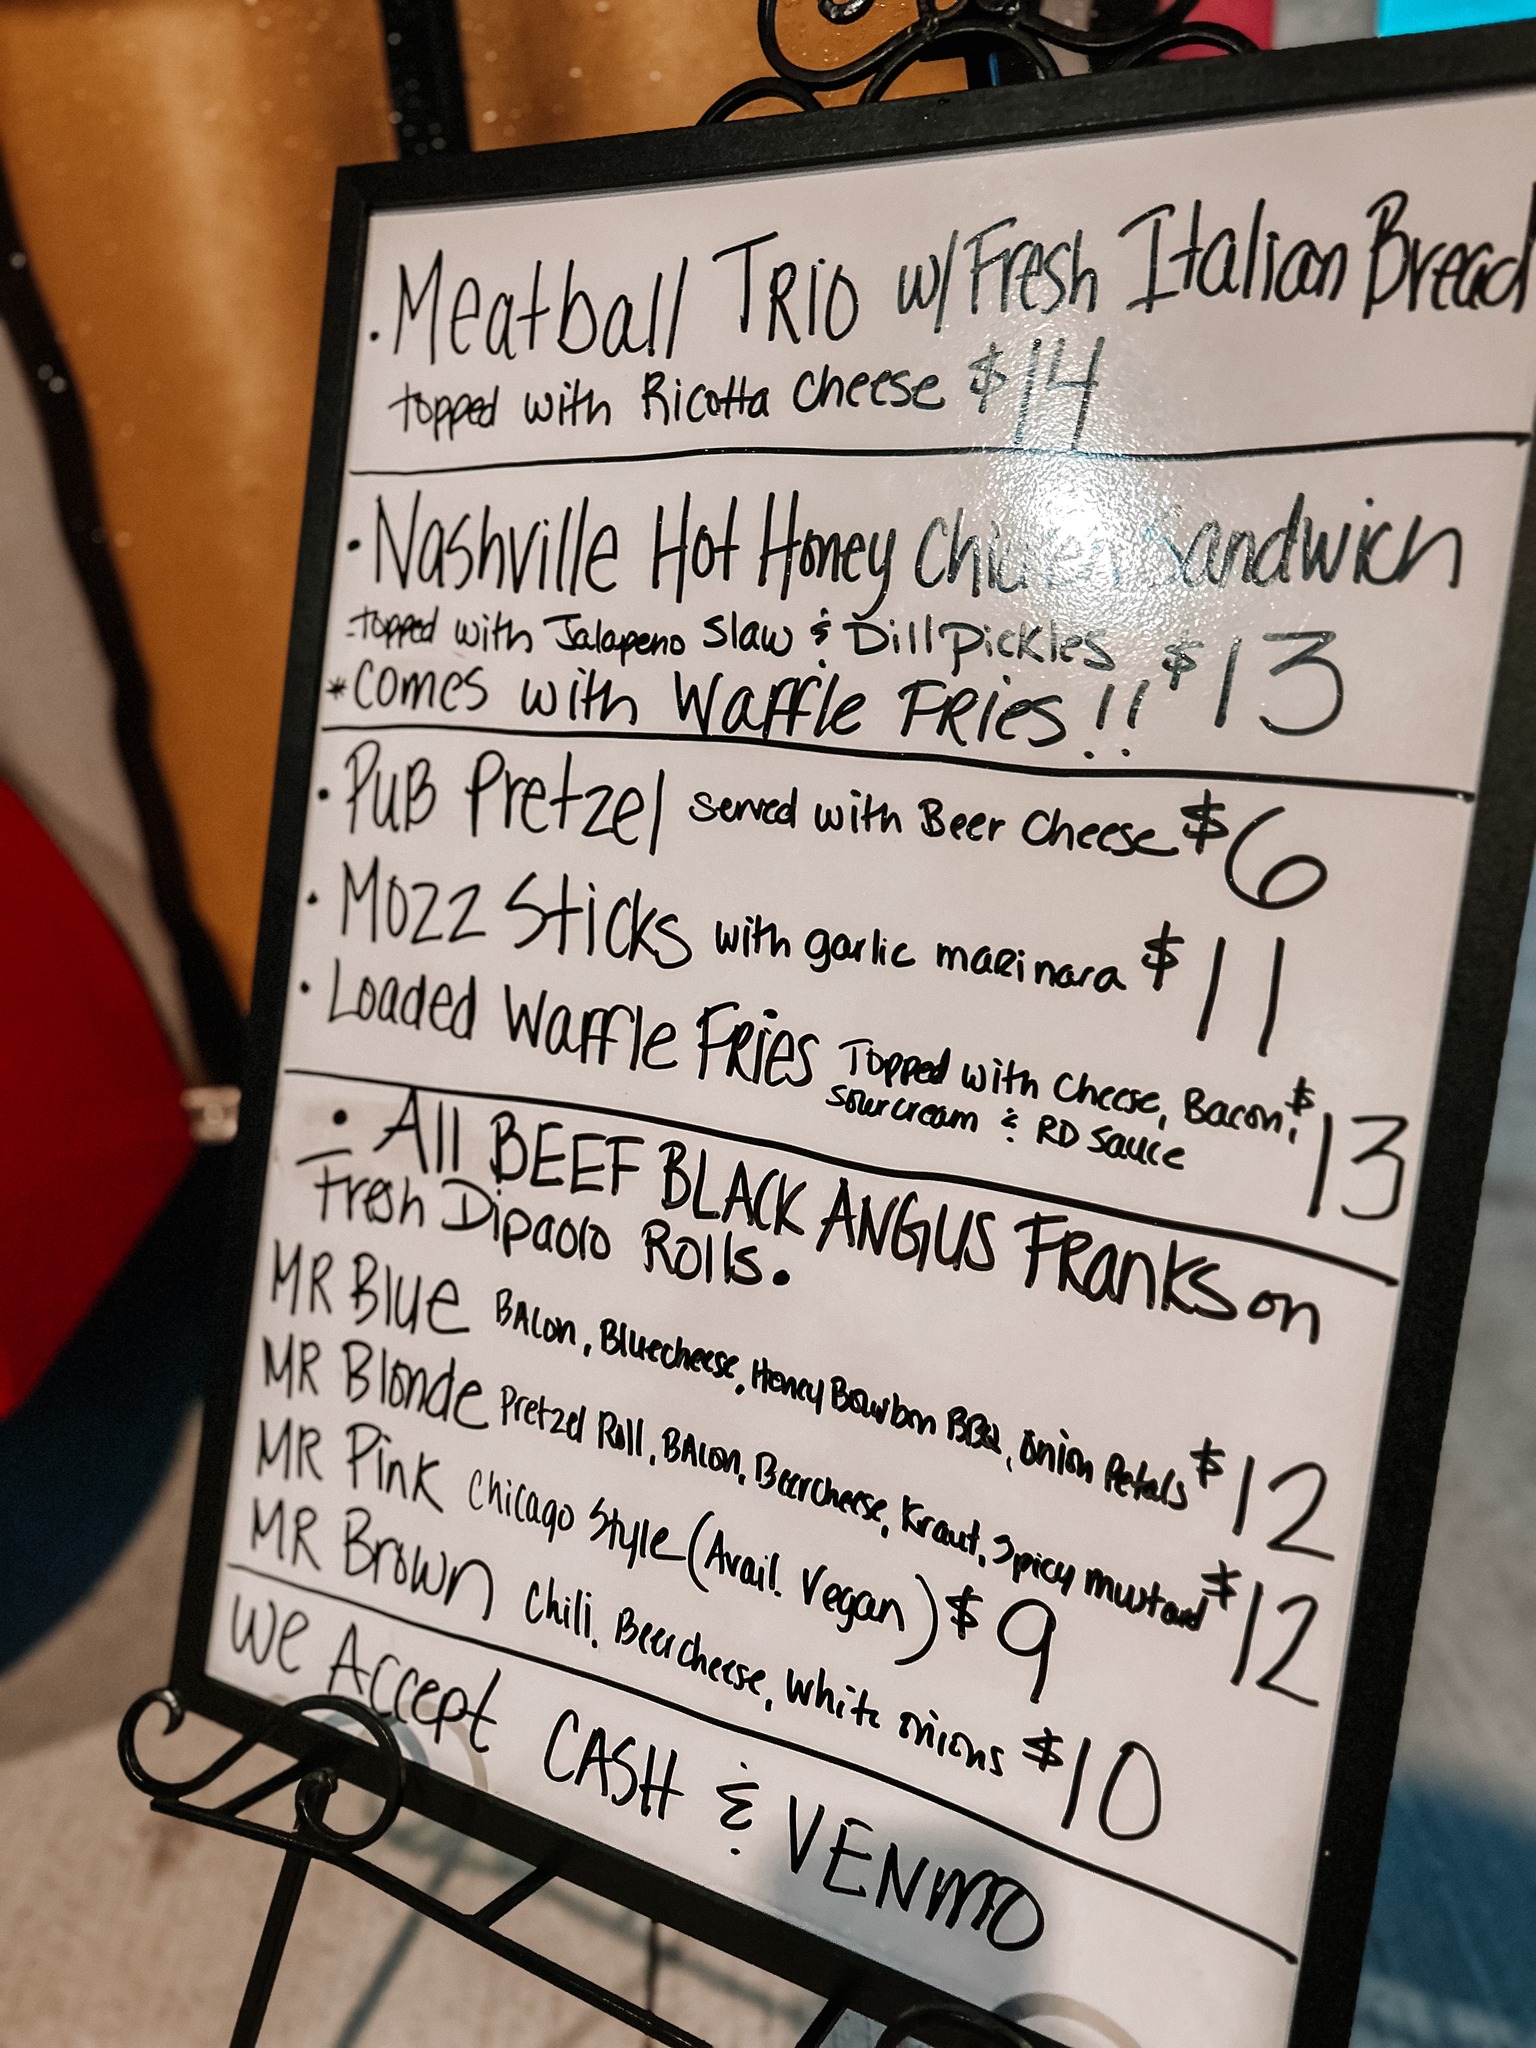 · Meatball TRIO w/ Fresh Italian Bread
topped with Ricotta Cheese $14
· Nashville Hot Honey Chicken Sandwich
-Topped with Jalapeno Slaw & Dill Pickles $13
*comes with Waffle FRies!!
· PUB Pretzel served with Beer Cheese $6
· Mozz Sticks with garlic maRinara $11
· Loaded Waffle FRies Topped with Cheese, Bacon, $13
sour cream & RD Sauce
· All BEEF BLACK ANGUS FRanks on
Fresh Dipaolo Rolls.
MR Blue BAcon, Bluecheese, Honey Bourbon BBQ, Onion Petals $12
MR Blonde Pretzel Roll, BAcon, Beercheese, Kraut, Spicy mustard $12
MR Pink Chicago Style (Avail. Vegan) $9
MR Brown Chili, Beercheese, white onions $10
We Accept CASH & VENMO